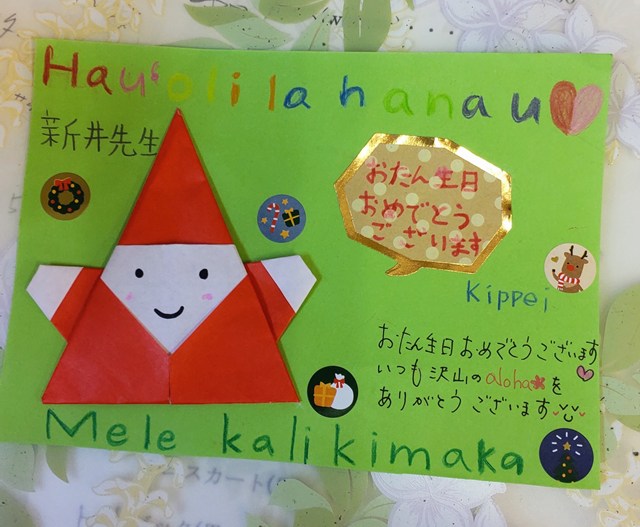 Hau'oli la hanau
新井先生
おたん生日
おめでとう
ございます
Kippei
おたん生日おめでとうございます
いつも沢山のalohaを
ありがとうございます
Mele kalikimaka
スカート